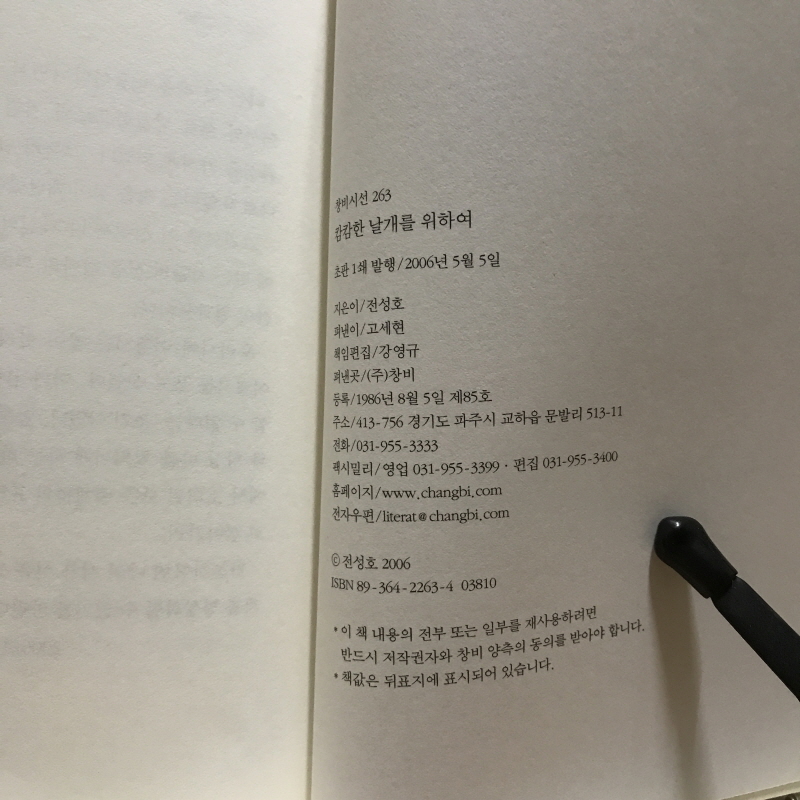 창비시선 263
캄캄한 날개를 위하여
초판 1쇄 발행/2006년 5월 5일
지은이/전성호
펴낸이/고세현
책임편집/강영규
펴낸곳/(주)창비
등록/1986년 8월 5일 제85호
주소/413-756 경기도 파주시 교하읍 문발리 513-11
전화/031-955-3333
팩시밀리/영업 031-955-3399 · 편집 031-955-3400
홈페이지/www.changbi.com
전자우편/literat@changbi.com
ⓒ 전성호 2006
ISBN 89-364-2263-4 03810
* 이 책 내용의 전부 또는 일부를 재사용하려면
반드시 저작권자와 창비 양측의 동의를 받아야 합니다.
* 책값은 뒤표지에 표시되어 있습니다.